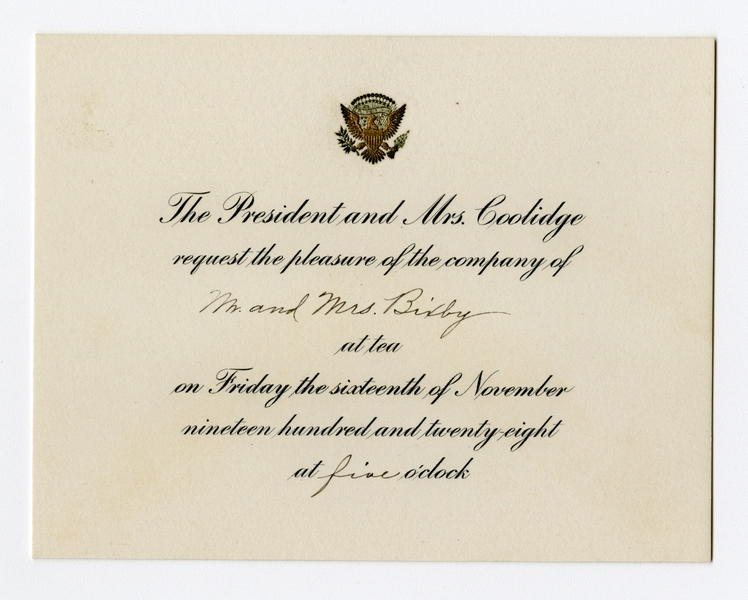 The President and Mrs. Coolidge
request the pleasure of the company of
Mr. and Mrs. Bixby
at tea
on Friday the sixteenth of November
nineteen hundred and twenty-eight
at five o'clock